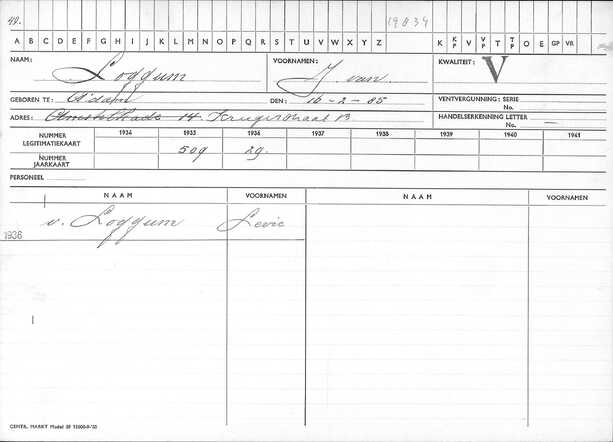 49. 19034
A B C D E F G H I J K L M N O P Q R S T U V W X Y Z K K P V V P T T P O E GP VR
NAAM: Loggum VOORNAMEN: J. van KWALITEIT: V
GEBOREN TE: A'dam DEN: 16-2-85 VENTVERGUNNING: SERIE No.
ADRES: Amstelkade 14 Krugerstraat 13 HANDELSERKENNING LETTER No. —
NUMMER LEGITIMATIEKAART 1934 1935 1936 1937 1938 1939 1940 1941
NUMMER JAARKAART 509 29.
PERSONEEL
NAAM VOORNAMEN NAAM VOORNAMEN
v. Loggum Levie
1936
CENTR. MARKT Model 28 15000-9-'35